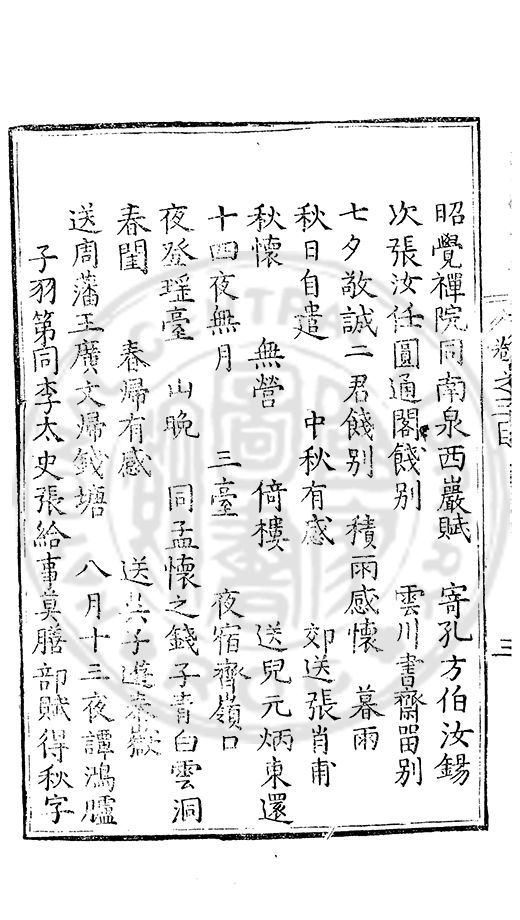 昭覺禪院同南泉西巖賦　寄孔方伯汝錫
次張汝任圓通閣餞別　雲川書齋畱别
七夕敬誠二君餞别　積雨感懷　暮雨
秋日自遣　中秋有感　郊送張肖甫
秋懷　無營　倚樓　送兒元炳東還
十四夜無月　三臺　夜宿齊嶺口
夜登瑶臺　山晚　同孟懷之錢子青白雲洞
春閨　春歸有感　送其子逢泰嶽
送周藩王廣文歸錢塘　八月十三夜譚鴻臚
子羽第同李太史張給事莫膳部賦得秋字
三